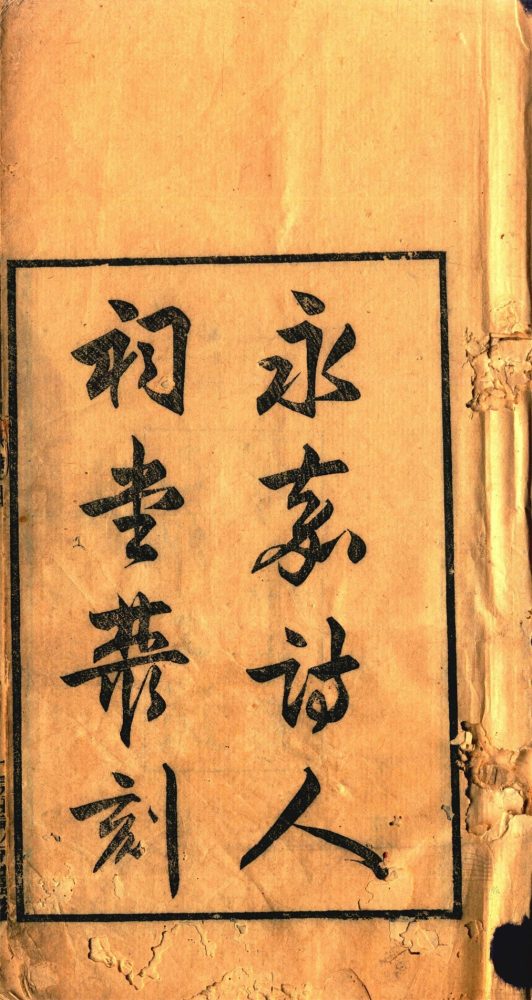 永嘉詩人
祠堂叢刻